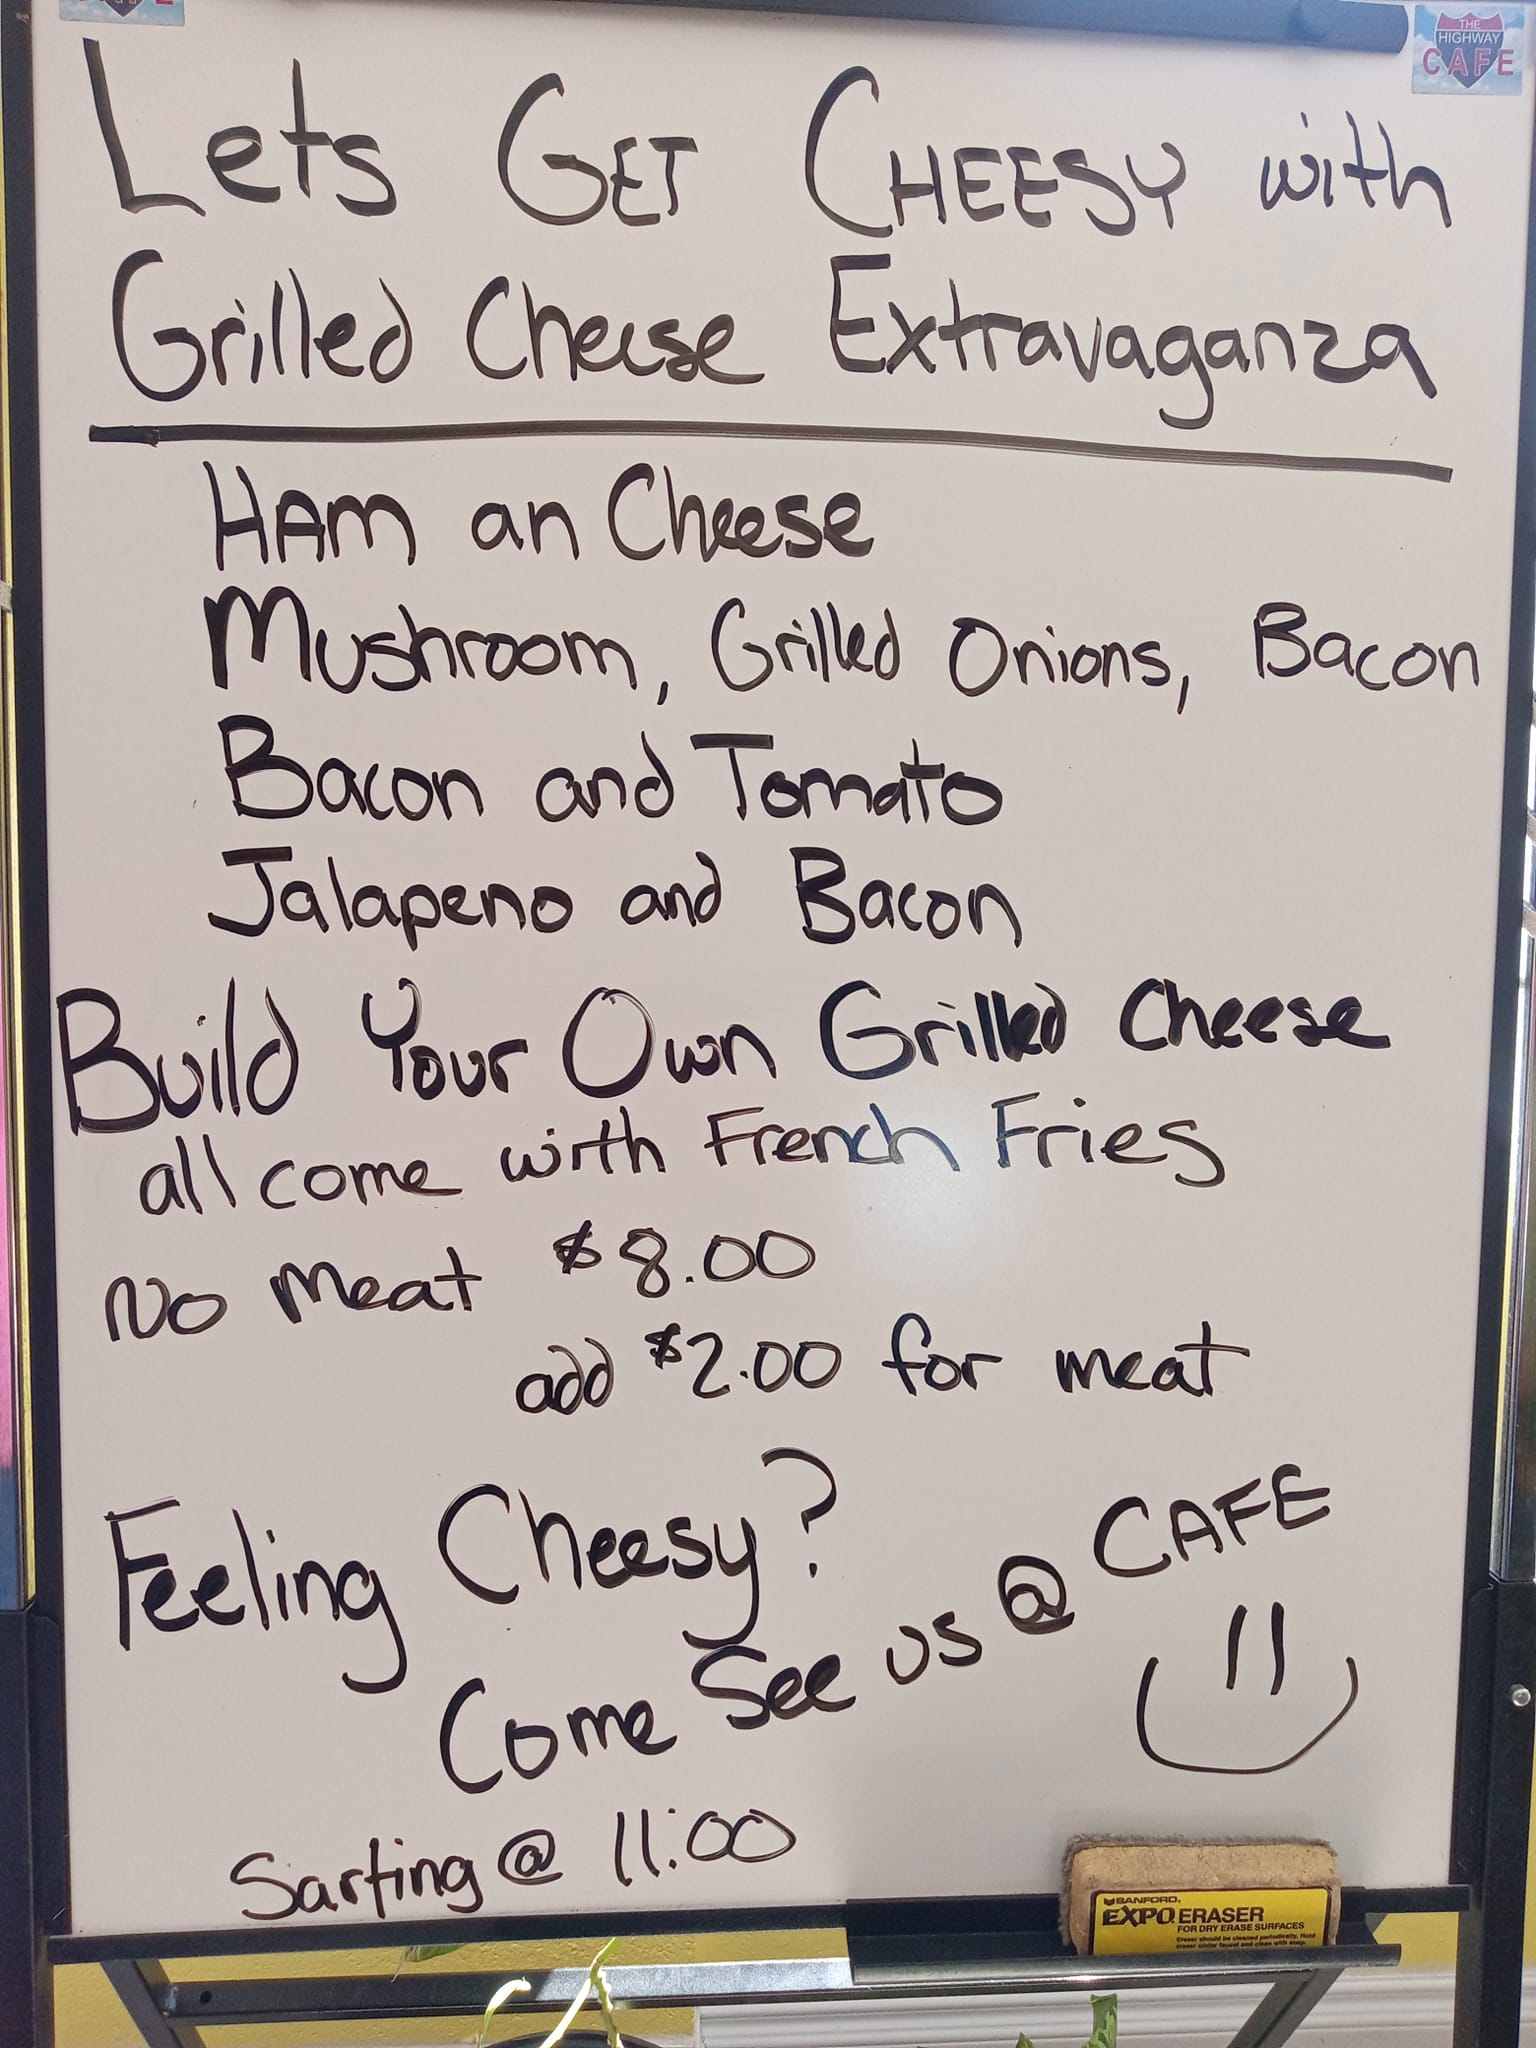 THE
HIGHWAY
CAFE
Lets GET CHEESY with
Grilled Cheese Extravaganza
HAM an Cheese
Mushroom, Grilled Onions, Bacon
Bacon and Tomato
Jalapeno and Bacon
Build Your Own Grilled Cheese
all come with French Fries
No meat $8.00
add $2.00 for meat
Feeling Cheesy?
Come See us @ CAFE
Sarting @ 11:00
SANFORD.
EXPO ERASER
FOR DRY ERASE SURFACES
Eraser should be cleaned periodically. Hold
eraser under faucet and clean with soap.